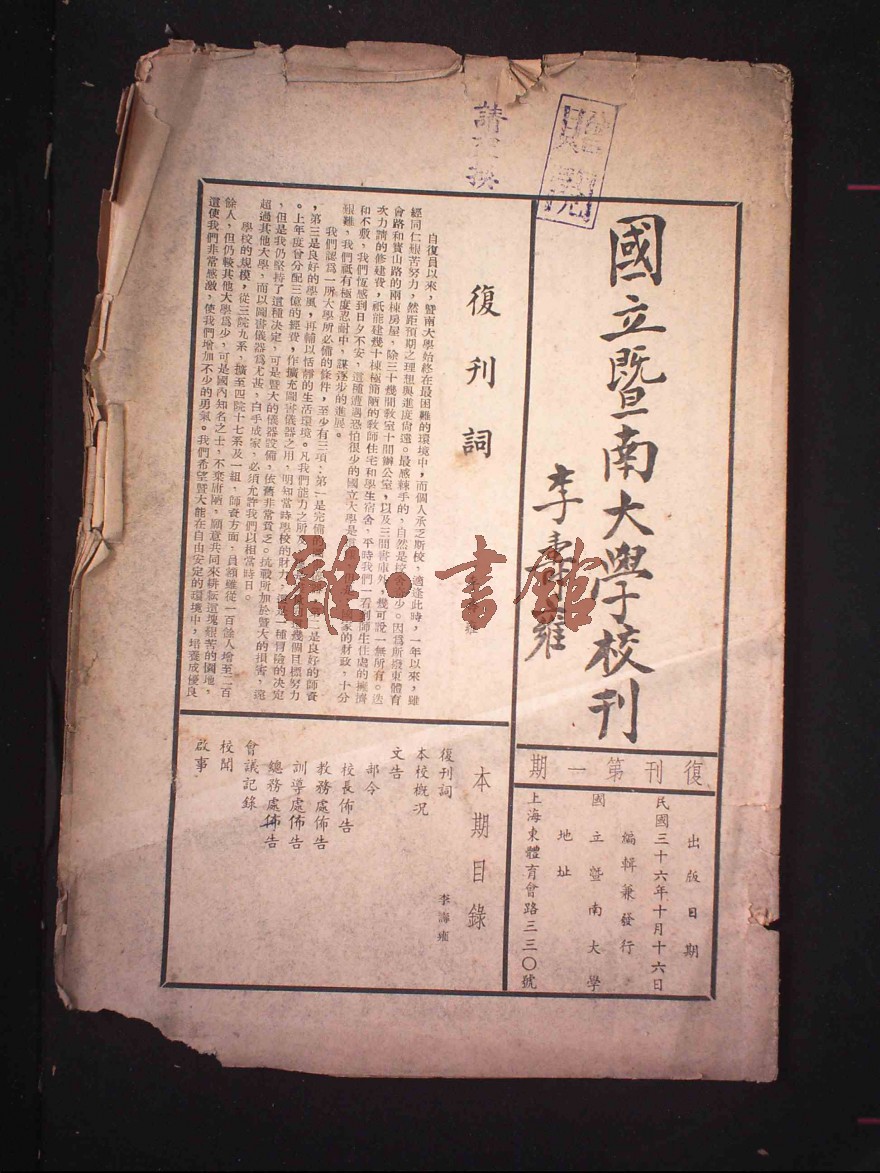 請交換
國立暨南大學校刊
李壽雍
復刊第一期
出版日期
民國三十六年十月十六日
編輯兼發行
國立暨南大學
地址
上海東體育會路三三〇號
復刊詞
自復員以來，暨南大學始終在最困難的環境中，而個人承乏斯校，適逢此時，一年以來，雖
經同仁艱苦努力，然距預期之理想與進度尚遠。最感棘手的，自然是校舍　少。因爲所撥東體育
會路和寶山路的兩棟房屋，除三十幾間教室十間辦公室，以及三間書庫外，幾可說一無所有。迭
次力請的修建費，祇能建幾十棟極簡陋的教師住宅和學生宿舍，平時我們一看到師生住處的擁擠
和不敷，我們恆感到日夕不安，這種遭遇恐怕很少的國立大學是　家的財政，十分
艱難，我們祇有極度忍耐中，謀逐步的進展。
我們認爲一所大學所必備的條件，至少有三項：第一是完備　二是良好的師資
，第三是良好的學風，再輔以恬靜的生活環境。凡我們能力之所及　幾個目標努力
。上年度曾分配三億的經費，作擴充圖書儀器之用，明知當時學校的財力，　種冒險的決定
，但是我仍堅持了這種決定，可是暨大的儀器設備，依舊非常貧乏。抗戰所加於暨大的損害，遠
超過其他大學，而以圖書儀器爲尤甚，白手成家，必須允許我們以相當時日。
學校的規模，從三院九系，擴至四院十七系及一組，師資方面，員額雖從一百餘人增至二百
餘人，但仍較其他大學爲少，可是國內知名之士，不棄謭陋，願意共同來耕耘這塊艱苦的園地，
這使我們非常感激，使我們增加不少的勇氣。我們希望暨大能在自由安定的環境中，培養成優良
本期目錄
復刊詞　李壽雍
本校概况
文告
部令
校長佈告
教務處佈告
訓導處佈告
總務處佈告
會議記錄
校聞
啟事
雜·書館